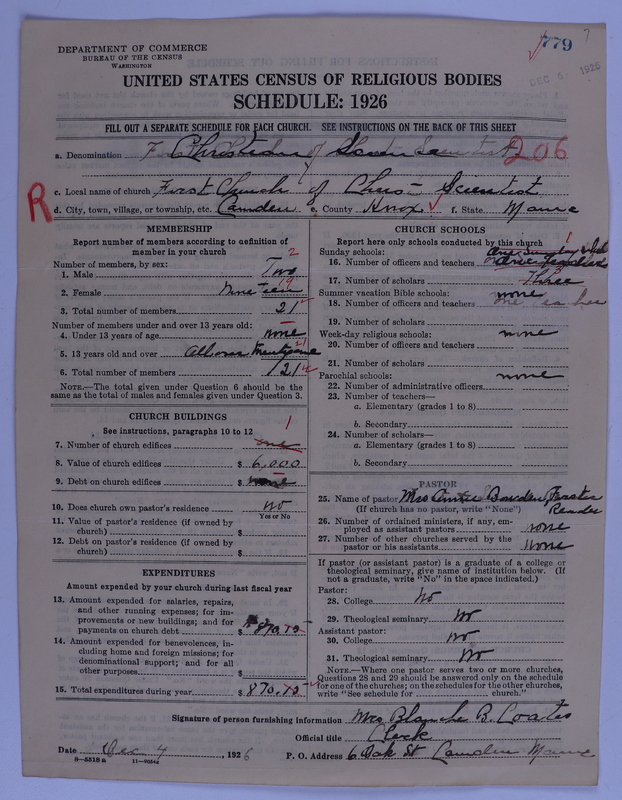 DEPARTMENT OF COMMERCE
BUREAU OF THE CENSUS
WASHINGTON
779
7
DEC 6 1926
UNITED STATES CENSUS OF RELIGIOUS BODIES
SCHEDULE: 1926
FILL OUT A SEPARATE SCHEDULE FOR EACH CHURCH. SEE INSTRUCTIONS ON THE BACK OF THIS SHEET
a. Denomination of Scientist 206
c. Local name of church First Church of Christ Scientist
R
d. City, town, village, or township, etc. Camden e. County Knox f. State Maine
MEMBERSHIP
Report number of members according to definition of
member in your church
Number of members, by sex:
2
1. Male Two
2. Female Nineteen 19
3. Total number of members 21
Number of members under and over 13 years old:
4. Under 13 years of age none
5. 13 years old and over 21
6. Total number of members 21
NOTE.—The total given under Question 6 should be
the same as the total of males and females given under Question 3.
CHURCH BUILDINGS
See instructions, paragraphs 10 to 12
1
7. Number of church edifices one
8. Value of church edifices $ 6,000
9. Debt on church edifices $ none
10. Does church own pastor's residence No
Yes or No
11. Value of pastor's residence (if owned by
church) $
12. Debt on pastor's residence (if owned by
church) $
EXPENDITURES
Amount expended by your church during last fiscal year
13. Amount expended for salaries, repairs,
and other running expenses; for im-
provements or new buildings; and for
payments on church debt $ 870.75
14. Amount expended for benevolences, in-
cluding home and foreign missions; for
denominational support; and for all
other purposes $
15. Total expenditures during year $ 870.75
CHURCH SCHOOLS
Report here only schools conducted by this church
Sunday schools:
1
16. Number of officers and teachers
17. Number of scholars Three
Summer vacation Bible schools: none
18. Number of officers and teachers
19. Number of scholars
Week-day religious schools: none
20. Number of officers and teachers
21. Number of scholars
Parochial schools: none
22. Number of administrative officers
23. Number of teachers—
a. Elementary (grades 1 to 8)
b. Secondary
24. Number of scholars—
a. Elementary (grades 1 to 8)
b. Secondary
PASTOR
25. Name of pastor Mrs Bowden
Reader
(If church has no pastor, write "None")
26. Number of ordained ministers, if any, em-
ployed as assistant pastors none
27. Number of other churches served by the
pastor or his assistants None
If pastor (or assistant pastor) is a graduate of a college or
theological seminary, give name of institution below. (If
not a graduate, write "No" in the space indicated.)
Pastor:
28. College No
29. Theological seminary No
Assistant pastor:
30. College No
31. Theological seminary No
NOTE.—Where one pastor serves two or more churches,
Questions 28 and 29 should be answered only on the schedule
for one of the churches; on the schedules for the other churches,
write "See schedule for church."
Signature of person furnishing information Mrs Blanche B. Coates
Official title Clerk
Date Dec 4, 1926 P. O. Address 6 Oak St Camden Maine
8—5518 a 11—9054a